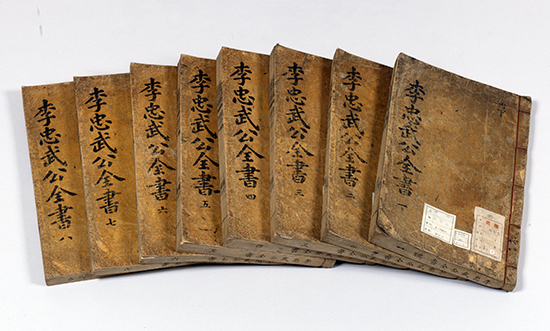 李忠武公全書 一
李忠武公全書 二
李忠武公全書 三
李忠武公全書 四
李忠武公全書 五
李忠武公全書 六
李忠武公全書 七
李忠武公全書 八